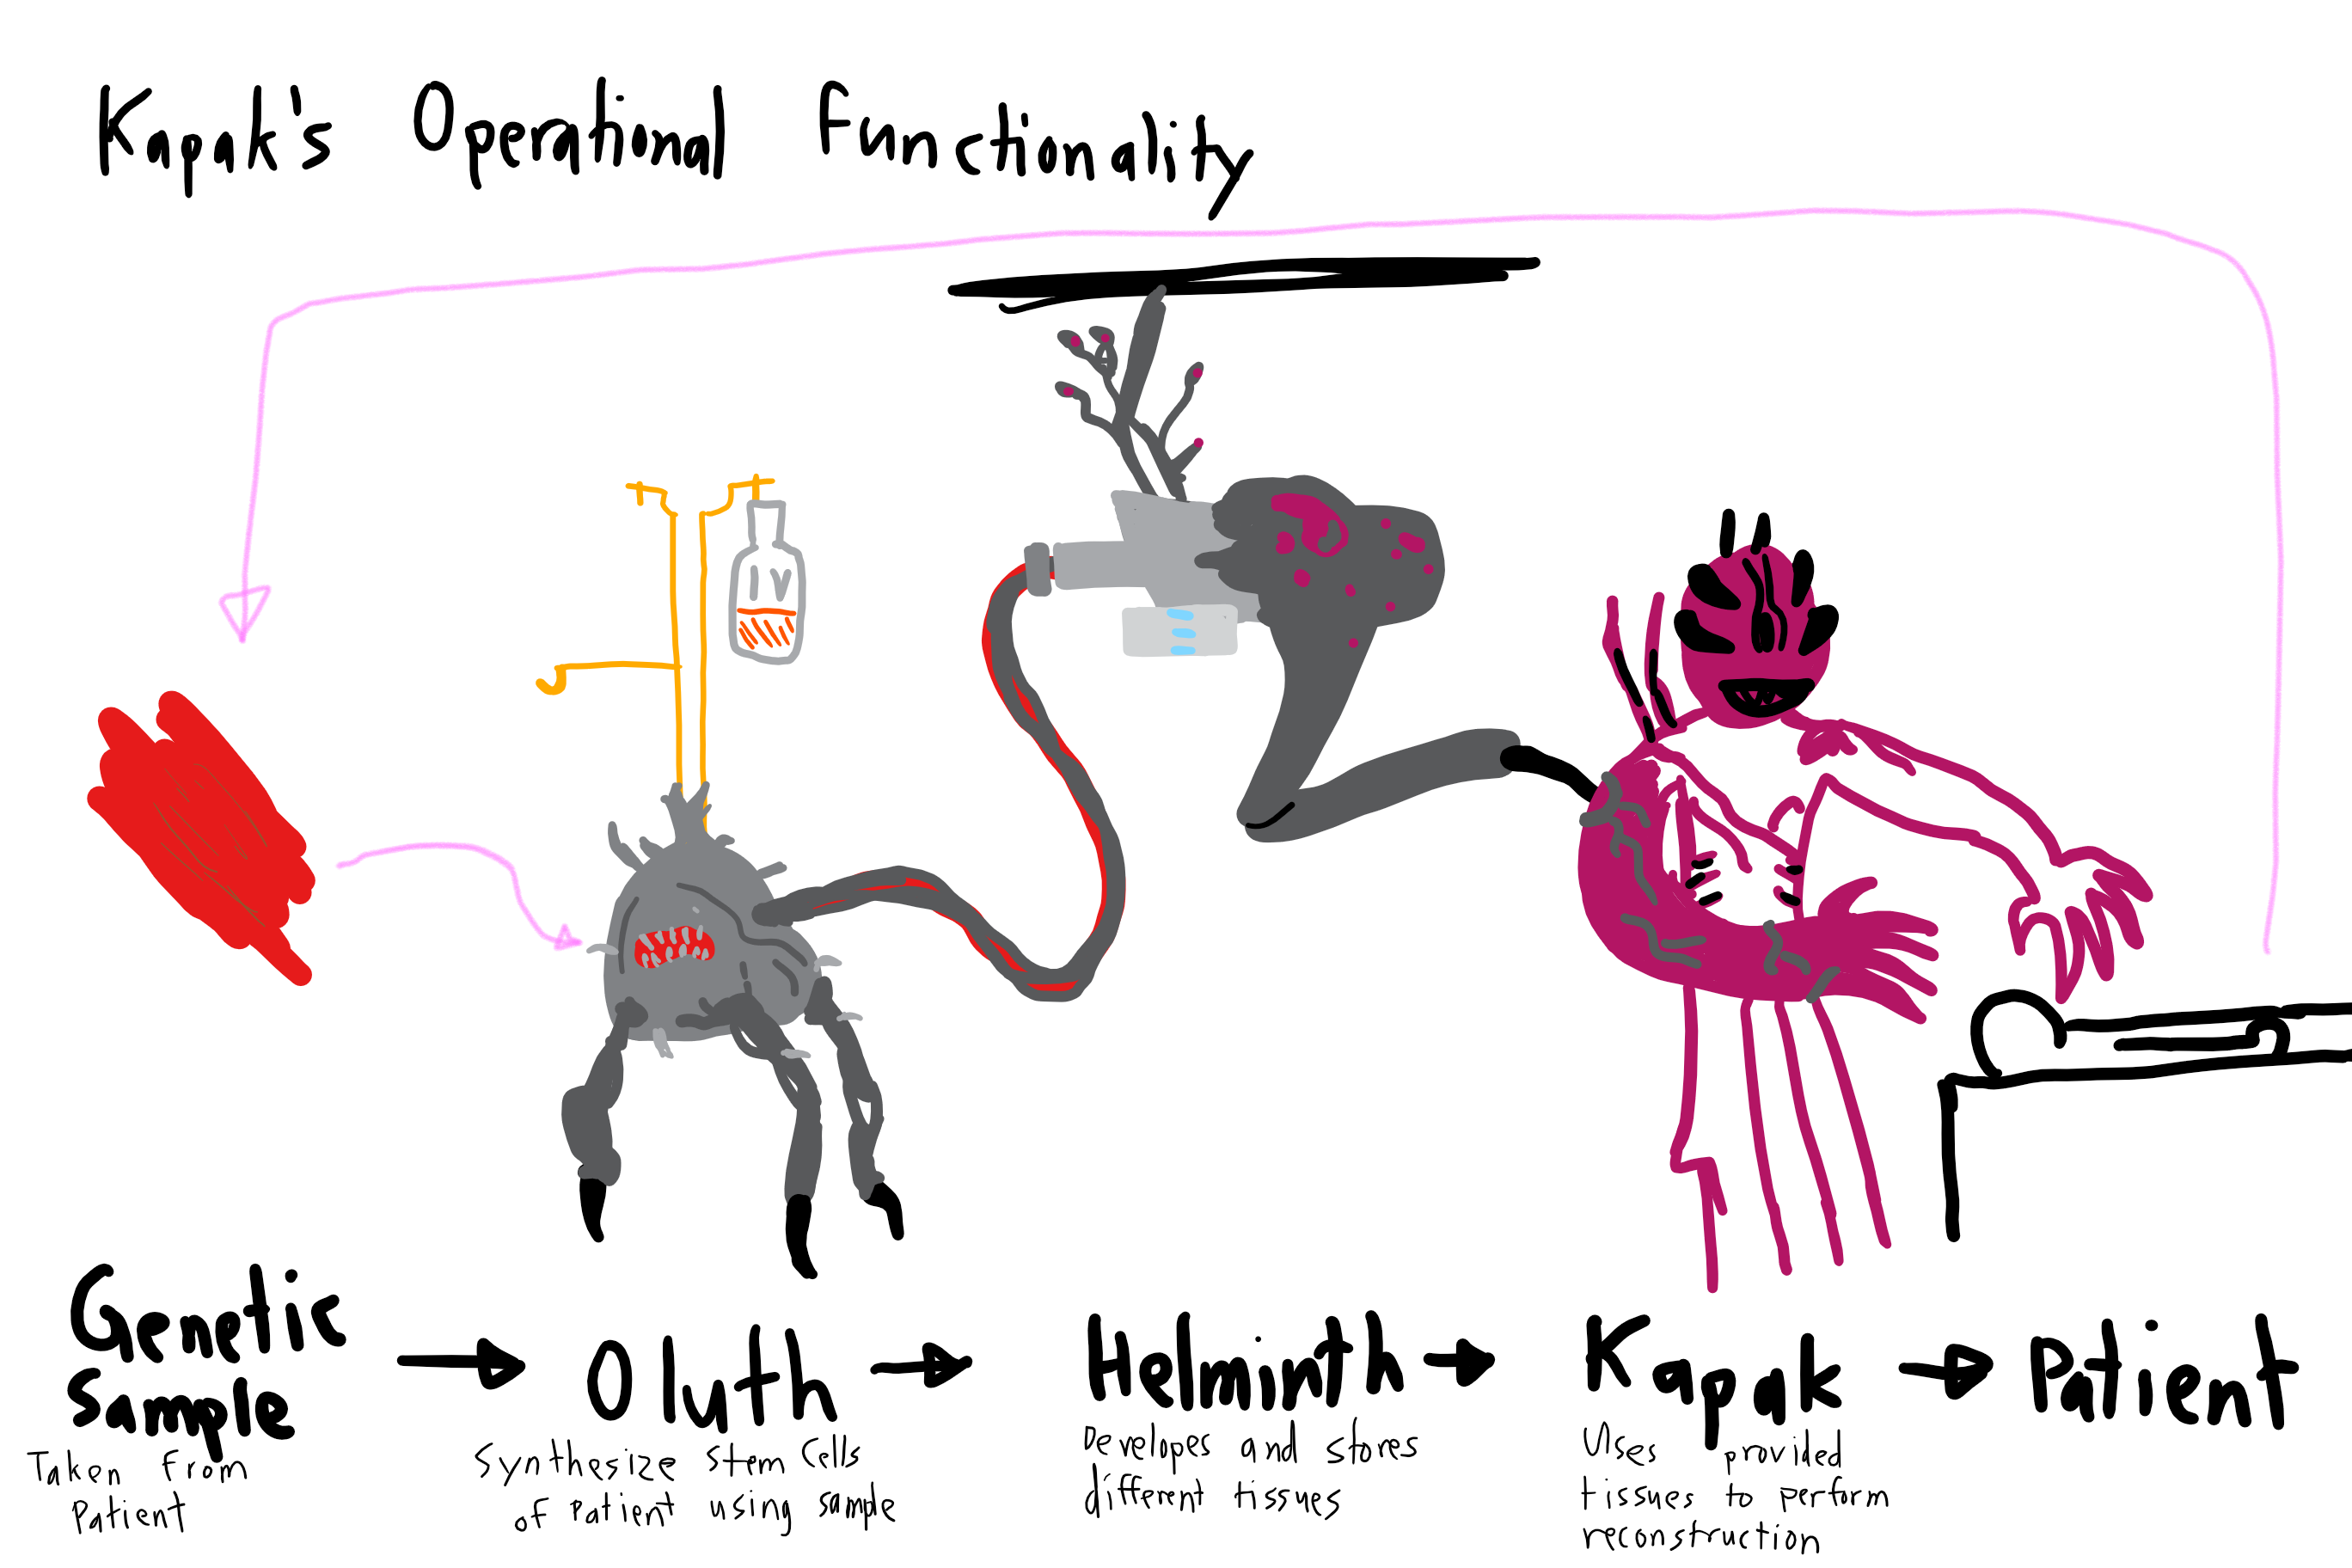 Kapak's Operational Functionality
IV
Genetic
Sample
Taken from
Patient
Oluth
Synthesize stem cells
of Patient using sample
Helminth
Developes and stores
different tissues
Kapak
Uses provided
tissues to perform
reconstruction
Patient